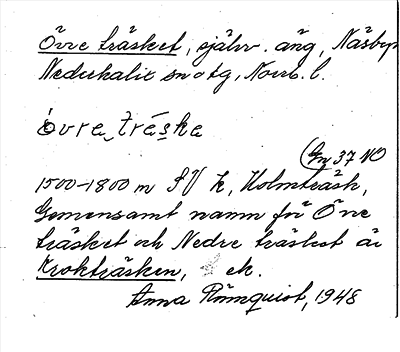 Övre träsket, självv. äng, Näsbyn
Nederkalix sn o tg, Norrb. l.
övra träska
Gn 37 NO
1500-1800 m SV k, Holmträsk,
Gemensamt namn för Övre
träsket och Nedre träsket är
Krokträsken, ek.
Anna Rönnquist, 1948